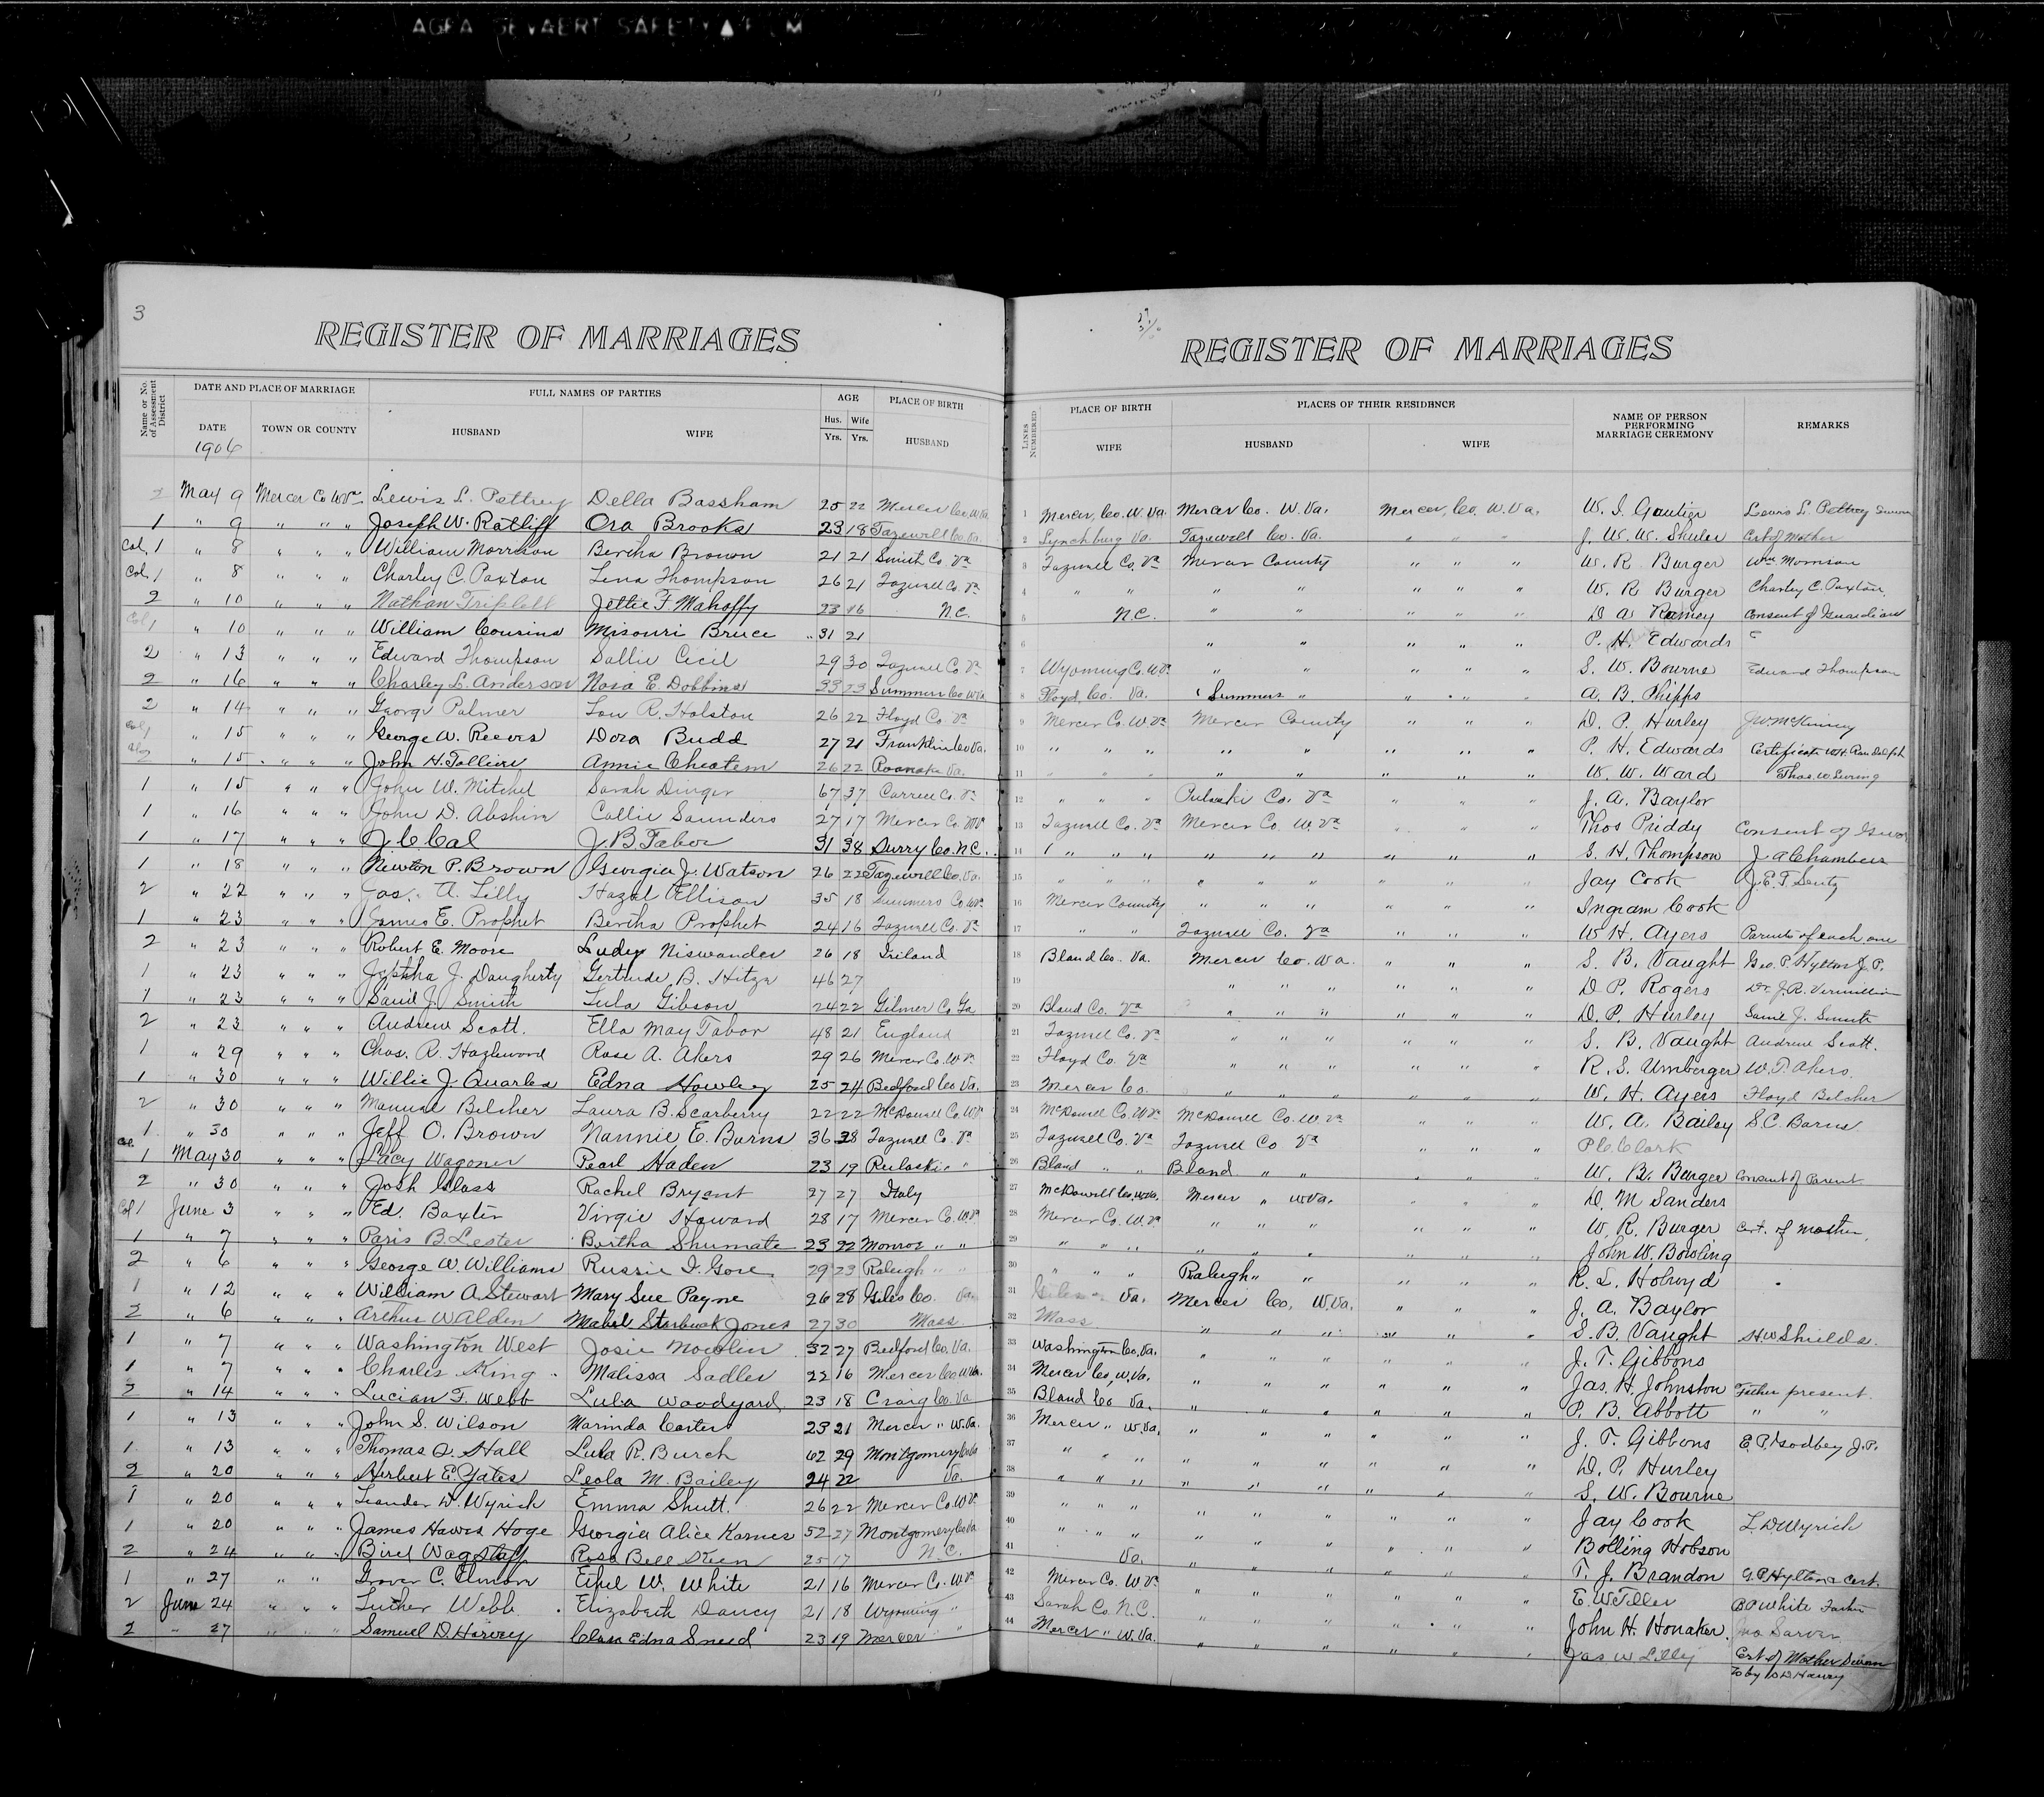 AGFA GEVAERT SAFETY▲FILM
3
REGISTER OF MARRIAGES
Name or No. of Assessment District
DATE AND PLACE OF MARRIAGE FULL NAMES OF PARTIES AGE PLACE OF BIRTH
DATE TOWN OR COUNTY HUSBAND WIFE Hus. Wife HUSBAND
Yrs. Yrs.
1906
2 May 9 Mercer Co W Va Lewis L. Pettrey Della Bassham 25 22 Mercer Co. W. Va.
1 " 9 " " " Joseph W. Ratliff Ora Brooks 23 18 Tazewell Co. Va.
Col. 1 " 8 " " " William Morrison Bertha Brown 21 21 Smith Co. Va
Col. 1 " 8 " " " Charley C. Paxton Lena Thompson 26 21 Tazwell Co. Va
2 " 10 " " " Nathan Triplett Jettie F Mahoffy 23 16 N.C.
Col 1 " 10 " " " William Cousins Misouri Bruce 31 21
2 " 13 " " " Edward Thompson Sallie Cecil 29 30 Tazwell Co. Va
2 " 16 " " " Charley L. Anderson Nosa E. Dobbins 33 23 Summers Co W Va
2 " 14 " " " George Palmer Lou R. Holston 26 22 Floyd Co. Va
Col 1 " 15 " " " George W. Reeves Dora Budd 27 21 Franklin Co Va.
2 " 15 " " " John H. Tolliver Annie Cheatem 26 22 Roanoke Va.
1 " 15 " " " John W. Mitchel Sarah Dinger 67 37 Carrell Co. Va
1 " 16 " " " John D. Abshire Callie Saunders 27 17 Mercer Co. W Va
1 " 17 " " " J. C. Cal J. B Tabor 31 38 Surry Co. N.C.
1 " 18 " " " Newton P. Brown Georgia J. Watson 26 22 Tazewell Co. Va.
2 " 22 " " " Jas. A. Lilly Hazel Ellison 35 18 Summers Co W Va
1 " 23 " " " James E. Prophet Bertha Prophet 24 16 Tazwell Co. Va
2 " 23 " " " Robert E. Moore Ludey Niswander 26 18 Iriland
1 " 23 " " " Jeptha J. Daugherty Gertrude B. Hitza 46 27
1 " 23 " " " Samil J. Smith Lula Gibson 24 22 Gilmer Co Ga
2 " 23 " " " Andrew Scott. Ella May Tabor 48 21 England
1 " 29 " " " Chas. R. Hazlewood Rose A. Akers 29 26 Mercer Co. W. Va
1 " 30 " " " Willie J. Quarles Edna Howley 25 24 Bedford Co Va.
2 " 30 " " " Manuel Belcher Laura B. Scarberry 22 22 McDowell Co. W Va
1 " 30 " " " Jeff O. Brown Nannie E. Burns 36 38 Tazwell Co. Va
Col. 1 May 30 " " " Lacy Wagoner Pearl Haden 23 19 Pulaski " "
2 " 30 " " " Josh Glass Rachel Bryant 27 27 Italy
Col 1 June 3 " " " Ed. Baxter Virgie Howard 28 17 Mercer Co. W. Va
1 " 7 " " " Paris B. Lester Bertha Shumate 23 22 Monroe " "
2 " 6 " " " George W. Williams Russie I. Gore 29 23 Raleigh " "
1 " 12 " " " William A. Stewart Mary Sue Payne 26 28 Giles Co. Va.
2 " 6 " " " Arthur W Alden Mabel Starbuck Jones 27 30 Mass
1 " 7 " " " Washington West Josie Nowlin 32 27 Bedford Co. Va.
1 " 7 " " " Charles King Malissa Sadler 22 16 Mercer Co. W. Va.
2 " 14 " " " Lucian F. Webb Lula Woodyard 23 18 Craig Co. Va
1 " 13 " " " John S. Wilson Marinda Carter 23 21 Mercer " W. Va.
1 " 13 " " " Thomas A. Hall Lula R. Burch 62 29 Montgomery Co Va
2 " 20 " " " Herbert E. Yates Leola M. Bailey 24 22 Va.
1 " 20 " " " Leander D. Wyrich Emma Shutt. 26 22 Mercer Co. W Va
1 " 20 " " " James Hawes Hoge Georgia Alice Karnes 52 27 Montgomery Co Va
2 " 24 " " " Birel Wagstaff Rosa Bell Steen 25 17 N.C.
1 " 27 " " Grover C. Elmore Ethel W. White 21 16 Mercer Co. W Va
2 June 24 " " " Luther Webb Elizabeth Dancy 21 18 Wyoming "
2 " 27 " " " Samuel D. Harvey Clara Edna Sneed 23 19 Mercer "
REGISTER OF MARRIAGES
LINES NUMBERED
PLACE OF BIRTH PLACES OF THEIR RESIDENCE NAME OF PERSON PERFORMING MARRIAGE CEREMONY REMARKS
WIFE HUSBAND WIFE
1 Mercer, Co. W. Va. Mercer Co. W. Va. Mercer, Co. W. Va. W. I. Gautier Lewis L. Pettrey Sworn
2 Lynchburg Va. Tazewell Co. Va. " " " J. W. W. Shuler Cert of Mother
3 Tazwell Co. Va Mercer County " " " W. R. Burger Wm Morrison
4 " " " " " " " W. R Burger Charley C. Paxton
5 N.C. " " " " " D A Ramey Consent of Guardian
6 " " " " " P. H. Edwards
7 Wyoming Co. W. Va " " " " " S. W. Bourne Edward Thompson
8 Floyd Co. Va. Summers " " " " A. B. Phipps
9 Mercer Co. W. Va Mercer County " " " D. P. Hurley J W. McKinney
10 " " " " " " " " P. H. Edwards Certificate W. H. Randolph
11 " " " " " " " " W. W. Ward Thos. W Luring
12 " " " Pulaski Co. Va " " " J. A. Baylor
13 Tazwell Co. Va Mercer Co. W. Va " " " Thos Priddy Consent of
14 " " " " " " " " " S. H. Thompson J. A Chambers
15 " " " " " " " " " Jay Cook J. E. T. Sentz
16 Mercer County " " " " " " Ingram Cook
17 " " Tazwell Co. Va " " " W H. Ayers Parents of each one
18 Bland Co. Va. Mercer Co. Va. " " " S. B. Vaught Geo. P. Hylton J. P.
19 " " " " " " D P. Rogers Dr. J. R. Vermillion
20 Bland Co. Va " " " " " " D. P. Hurley Samil J. Smith
21 Tazwell Co. Va " " " " " " S. B. Vaught Andrew Scott.
22 Floyd Co. Va " " " " " " R. S. Umberger W. P. Akers.
23 Mercer Co. " " " " " " W. H. Ayers Floyd Belcher
24 McDowell Co. W Va McDowell Co. W. Va " " " W. A. Bailey S. C. Barns
25 Tazwell Co. Va Tazwell Co Va " " " P C. Clark
26 Bland " " Bland " " W. R. Burger Consent of Parent
27 McDowell Co. W. Va. Mercer " W Va. " " " D. M Sanders
28 Mercer Co. W. Va " " " " " " W. R. Burger Cert. of Mother.
29 " " " " " " " " " John W. Bowling
30 " " " Raleigh " " " " " R. L. Holroyd
31 Giles Va. Mercer Co, W. Va. " " " J. A. Baylor
32 Mass " " " " " " S. B. Vaught H W Shields.
33 Washington Co. Va. " " " " " " J. T. Gibbons
34 Mercer Co, W. Va. " " " " " " Jas. H. Johnston Father present
35 Bland Co Va. " " " " " " P. B. Abbott " "
36 Mercer " W. Va. " " " " " " J. T. Gibbons E. P. Godbey J. P.
37 " " " " " " " " " D. P. Hurley
38 " " " " " " " " " S. W. Bourne
39 " " " " " " " " " Jay Cook L D Wyrich
40 " " " " " " " " " Bolling Hobson
41 Va. " " " " " " T. J. Brandon G. P. Hylton Cert.
42 Mercer Co. W Va " " " " " " E. W. Tiller B P White Father
43 Sarah Co. N.C. " " " " " " John H. Honaker. Jno Sarver
44 Mercer " W. Va. " " " " " " Jas W Lilly Cert of Mother Sworn
to by S D Harvey